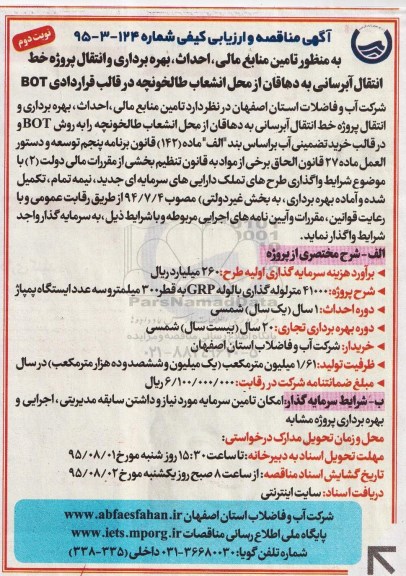 نوبت دوم
آگهی مناقصه و ارزیابی کیفی شماره ۱۲۴-۳-۹۵
به منظور تامین منابع مالی، احداث، بهره برداری و انتقال پروژه خط
انتقال آبرسانی به دهاقان از محل انشعاب طالخونچه در قالب قراردادی BOT
شرکت آب و فاضلاب استان اصفهان در نظر دارد تامین منابع مالی،احداث، بهره برداری و
انتقال پروژه خط انتقال آبرسانی به دهاقان از محل انشعاب طالخونچه را به روش BOT و
در قالب خرید تضمینی آب بر اساس بند "الف" ماده (۱۴۲) قانون برنامه پنجم توسعه و دستور
العمل ماده ۲۷ قانون الحاق برخی از مواد به قانون تنظیم بخشی از مقررات مالی دولت (۲) با
موضوع شرایط واگذاری طرح های تملک دارایی های سرمایه ای جدید، نیمه تمام، تکمیل
شده و آماده بهره برداری، به بخش غیر دولتی) مصوب ۹۴/۷/۴ از طریق رقابت عمومی و با
رعایت قوانین ، مقررات و آیین نامه های اجرایی مربوطه و با شرایط ذیل ،به سرمایه گذار واجد
شرایط واگذار نماید.
الف- شرح مختصری از پروژه
برآورد هزینه سرمایه گذاری اولیه طرح: ۲۶۰ میلیارد ریال
شرح پروژه: ۴۱۰۰۰ متر لوله گذاری با لوله GRP به قطر ۳۰۰ میلمتر و سه عدد ایستگاه پمپاژ
دوره احداث: ۱ سال (یک سال) شمسی
دوره بهره برداری تجاری: ۲۰ سال (بیست سال) شمسی
خریدار: شرکت آب و فاضلاب استان اصفهان
ظرفیت تولید: ۱/۶۱ میلیون مترمکعب (یک میلیون و ششصد و ده هزار مترمکعب) در سال
مبلغ ضمانتنامه شرکت در رقابت: ۶/۱۰۰/۰۰۰/۰۰۰ ریال
ب- شرایط سرمایه گذار: امکان تامین سرمایه مورد نیاز و داشتن سابقه مدیریتی، اجرایی و
بهره برداری پروژه مشابه
محل و زمان تحویل مدارک درخواستی:
مهلت تحویل اسناد به دبیرخانه: تا ساعت ۱۵:۳۰ روز شنبه مورخ ۹۵/۰۸/۰۱
تاریخ گشایش اسناد مناقصه: از ساعت ۸ صبح روز یکشنبه مورخ ۹۵/۰۸/۰۲
دریافت اسناد: سایت اینترنتی
شرکت آب و فاضلاب استان اصفهان www.abfaesfahan.ir
پایگاه ملی اطلاع رسانی مناقصات www.iets.mporg.ir
شماره تلفن گویا: ۳۶۶۸۰۰۳۰-۰۳۱ داخلی (۳۳۵-۳۳۸)